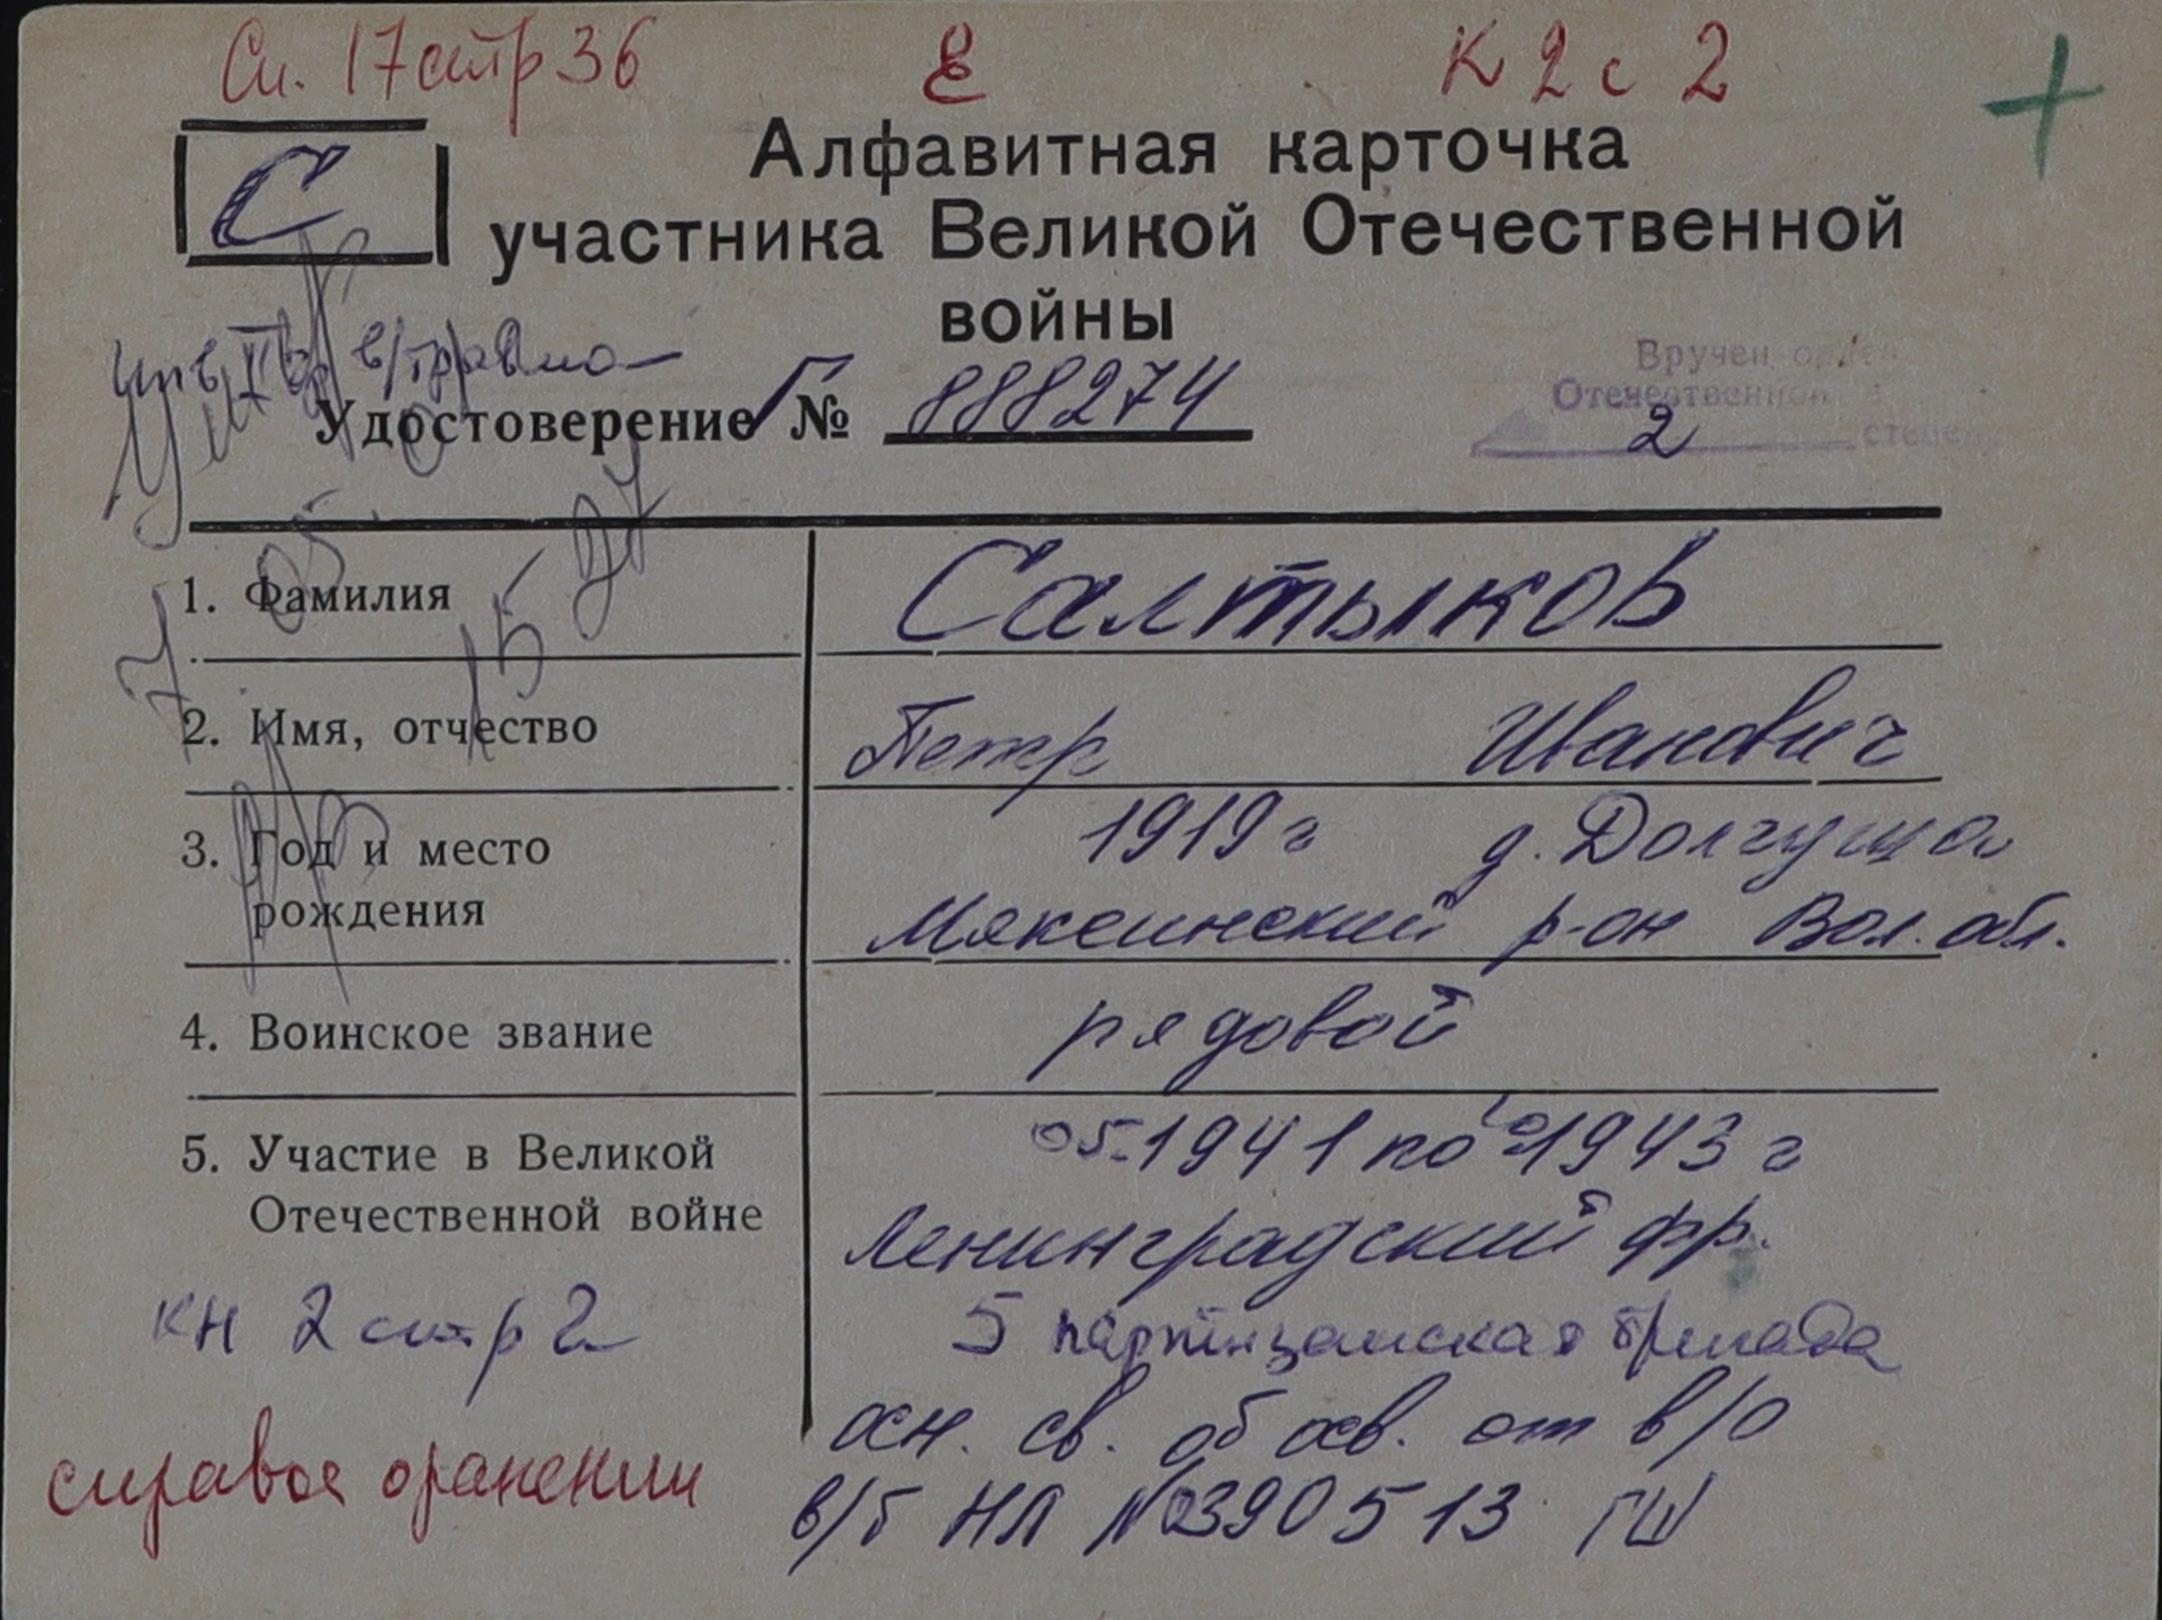 Сп. 17 стр 36 Е К 2 с 2 +
С
Алфавитная карточка
участника Великой Отечественной
войны
инв II гр в/травма
Вручен орден
Отечественной в
2 степени
Удостоверение Г № 888274
1. Фамилия Салтыков
2. Имя, отчество Петр Иванович
3. Год и место 1919 г д. Долгуша
рождения Мяксинский р-он Вол. обл.
4. Воинское звание рядовой
5. Участие в Великой 1941 по 1943 г
Отечественной войне Ленинградский фр.
кн 2 стр 2 5 партизанская бригада
осн. св. об осв. от в/о
справое оранении в/б НЛ № 390513 ГШ
Умер